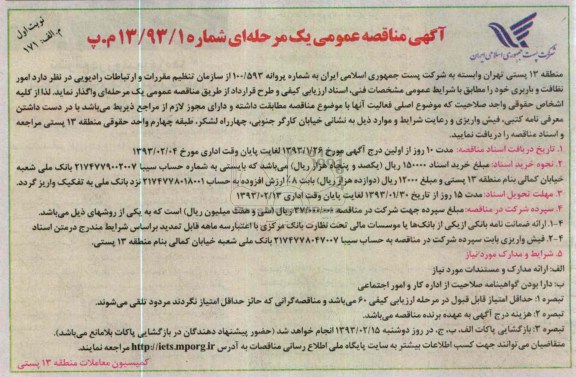 نوبت اول
م. الف: ۱۷۱
آگهی مناقصه عمومی یک مرحله‌ای شماره ۱۳/۹۳/۱/م.پ
شرکت پست جمهوری اسلامی ایران
منطقه ۱۳ پستی تهران وابسته به شرکت پست جمهوری اسلامی ایران به شماره پروانه ۱۰۰/۵۹۳ از سازمان تنظیم مقررات و ارتباطات رادیویی در نظر دارد امور
نظافت و باربری خود را مطابق با شرایط عمومی مشخصات فنی، اسناد ارزیابی کیفی و طرح قرارداد از طریق مناقصه عمومی یک مرحله‌ای واگذار نماید. لذا از کلیه
اشخاص حقوقی واجد صلاحیت که موضوع اصلی فعالیت آنها با موضوع مناقصه مطابقت داشته و دارای مجوز لازم از مراجع ذیربط می‌باشد با در دست داشتن
معرفی نامه کتبی، فیش واریزی و رعایت شرایط و موارد ذیل به نشانی خیابان کارگر جنوبی، چهارراه لشکر، طبقه چهارم واحد حقوقی منطقه ۱۳ پستی مراجعه
و اسناد مناقصه را دریافت نمایند.
۱. تاریخ دریافت اسناد مناقصه: مدت ۱۰ روز از اولین درج آگهی مورخ ۱۳۹۳/۱/۲۶ لغایت پایان وقت اداری مورخ ۱۳۹۳/۰۲/۰۴
۲. نحوه خرید اسناد: مبلغ خرید اسناد ۱۵۰۰۰۰ ریال (یکصد و پنجاه هزار ریال) می‌باشد که بایستی به شماره حساب سیبا ۲۱۷۴۷۷۹۰۰۲۰۰۷ بانک ملی شعبه
خیابان کمالی بنام منطقه ۱۳ پستی و مبلغ ۱۲۰۰۰ ریال (دوازده هزار ریال) بابت ۸٪ ارزش افزوده به حساب ۲۱۷۴۷۷۸۰۱۸۰۰۱ نزد بانک ملی به تفکیک واریز گردد.
۳. مهلت تحویل اسناد: مدت ۱۵ روز از تاریخ ۱۳۹۳/۰۱/۳۰ لغایت پایان وقت اداری ۱۳۹۳/۰۲/۱۳
۴. سپرده شرکت در مناقصه: مبلغ سپرده جهت شرکت در مناقصه ۳۷/۰۰۰/۰۰۰ ریال (سی و هفت میلیون ریال) است که به یکی از روشهای ذیل می‌باشد.
۴-۱. ارائه ضمانت نامه بانکی از یکی از بانک‌ها یا موسسات مالی تحت نظارت بانک مرکزی با اعتبار سه ماهه قابل تمدید براساس شرایط مندرج در متن اسناد
۴-۲. فیش واریزی بابت سپرده شرکت در مناقصه به حساب سیبا ۲۱۷۴۷۷۸۰۴۷۰۰۷ بانک ملی شعبه خیابان کمالی بنام منطقه ۱۳ پستی.
۵. شرایط و مدارک مورد نیاز
الف: ارائه مدارک و مستندات مورد نیاز
ب: دارا بودن گواهینامه صلاحیت از اداره کار و امور اجتماعی
تبصره ۱: حداقل امتیاز قابل قبول در مرحله ارزیابی کیفی ۶۰ می‌باشد و مناقصه‌گرانی که حائز حداقل امتیاز نگردند مردود تلقی می‌شوند.
تبصره ۲: هزینه درج آگهی به عهده برنده مناقصه می‌باشد.
تبصره ۳: بازگشایی پاکات الف، ب، ج، در روز دوشنبه ۱۳۹۳/۰۲/۱۵ انجام خواهد شد (حضور پیشنهاد دهندگان در بازگشایی پاکات بلامانع می‌باشد).
متقاضیان می‌توانند جهت کسب اطلاعات بیشتر به سایت پایگاه ملی اطلاع رسانی مناقصات به آدرس http://iets.mporg.ir مراجعه نمایند.
کمیسیون معاملات منطقه ۱۳ پستی